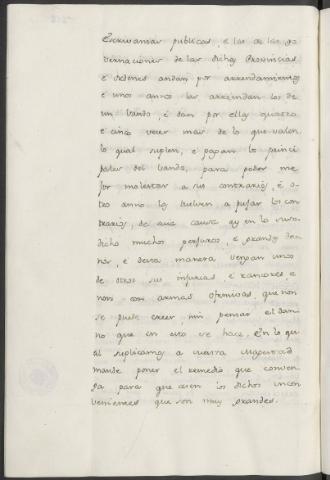 Escrivanias publicas, e las de las go
vernaciones de las dichas Provincias
e ordenes andan por arrendamientos
e unos años las arriendan los de
un bando, e dan por ellas quatro
e cinco veces mas de lo que valen
lo qual suplen, e pagan los princi
pales del bando, para poder me
jor molestar a sus contrarios, e o
tro año las buelven a pujar los con
trarios, de cuia causa ay en lo suso
dicho muchos perjuros, e grandes da
ños, e desta manera vengan unos
de otros sus injurias, e rancores, e
non con armas ofensivas, que non
se puede creer nin pensar el dan
no que en esto se hace. En lo qu
al suplicamos a vuestra Magestad
mande poner el remedio que conven
ga para que cesen los dichos incon
venientes que son muy grandes.